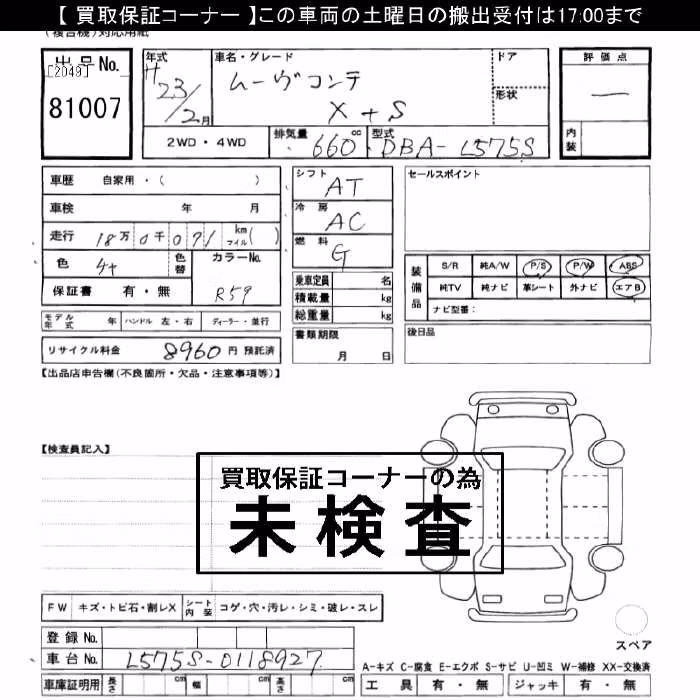 【 買取保証コーナー 】この車両の土曜日の搬出受付は17:00まで
(複合機)対応用紙
出品No.
[2049]
81007
年式
H23/2月
車名・グレード
ムーヴコンテ
X+S
ドア
形状
評価点
―
内装
2WD・4WD
排気量
660cc
型式
DBA-L575S
車歴 自家用・( )
車検 年 月
走行 18万0千071 km マイル( )
色
色替
カラーNo.
R59
保証書 有・無
モデル年式 年 ハンドル 左・右 ディーラー・並行
リサイクル料金 8960円 預託済
シフト
AT
冷房
AC
燃料
G
乗車定員 名
積載量 kg
総重量 kg
書類期限
月 日
セールスポイント
装備品
S/R 純A/W P/S P/W ABS
純TV 純ナビ 革シート 外ナビ エアB
ナビ型番:
後日品
【出品店申告欄(不良箇所・欠品・注意事項等)】
【検査員記入】
買取保証コーナーの為
未検査
FW キズ・トビ石・割レX シート内装 コゲ・穴・汚レ・シミ・破レ・スレ
登録No.
車台No. L575S-0118927
車庫証明用 長さ cm 幅 cm 高さ cm
スペア
A-キズ C-腐食 E-エクボ S-サビ U-凹ミ W-補修 XX-交換済
工具 有・無 ジャッキ 有・無